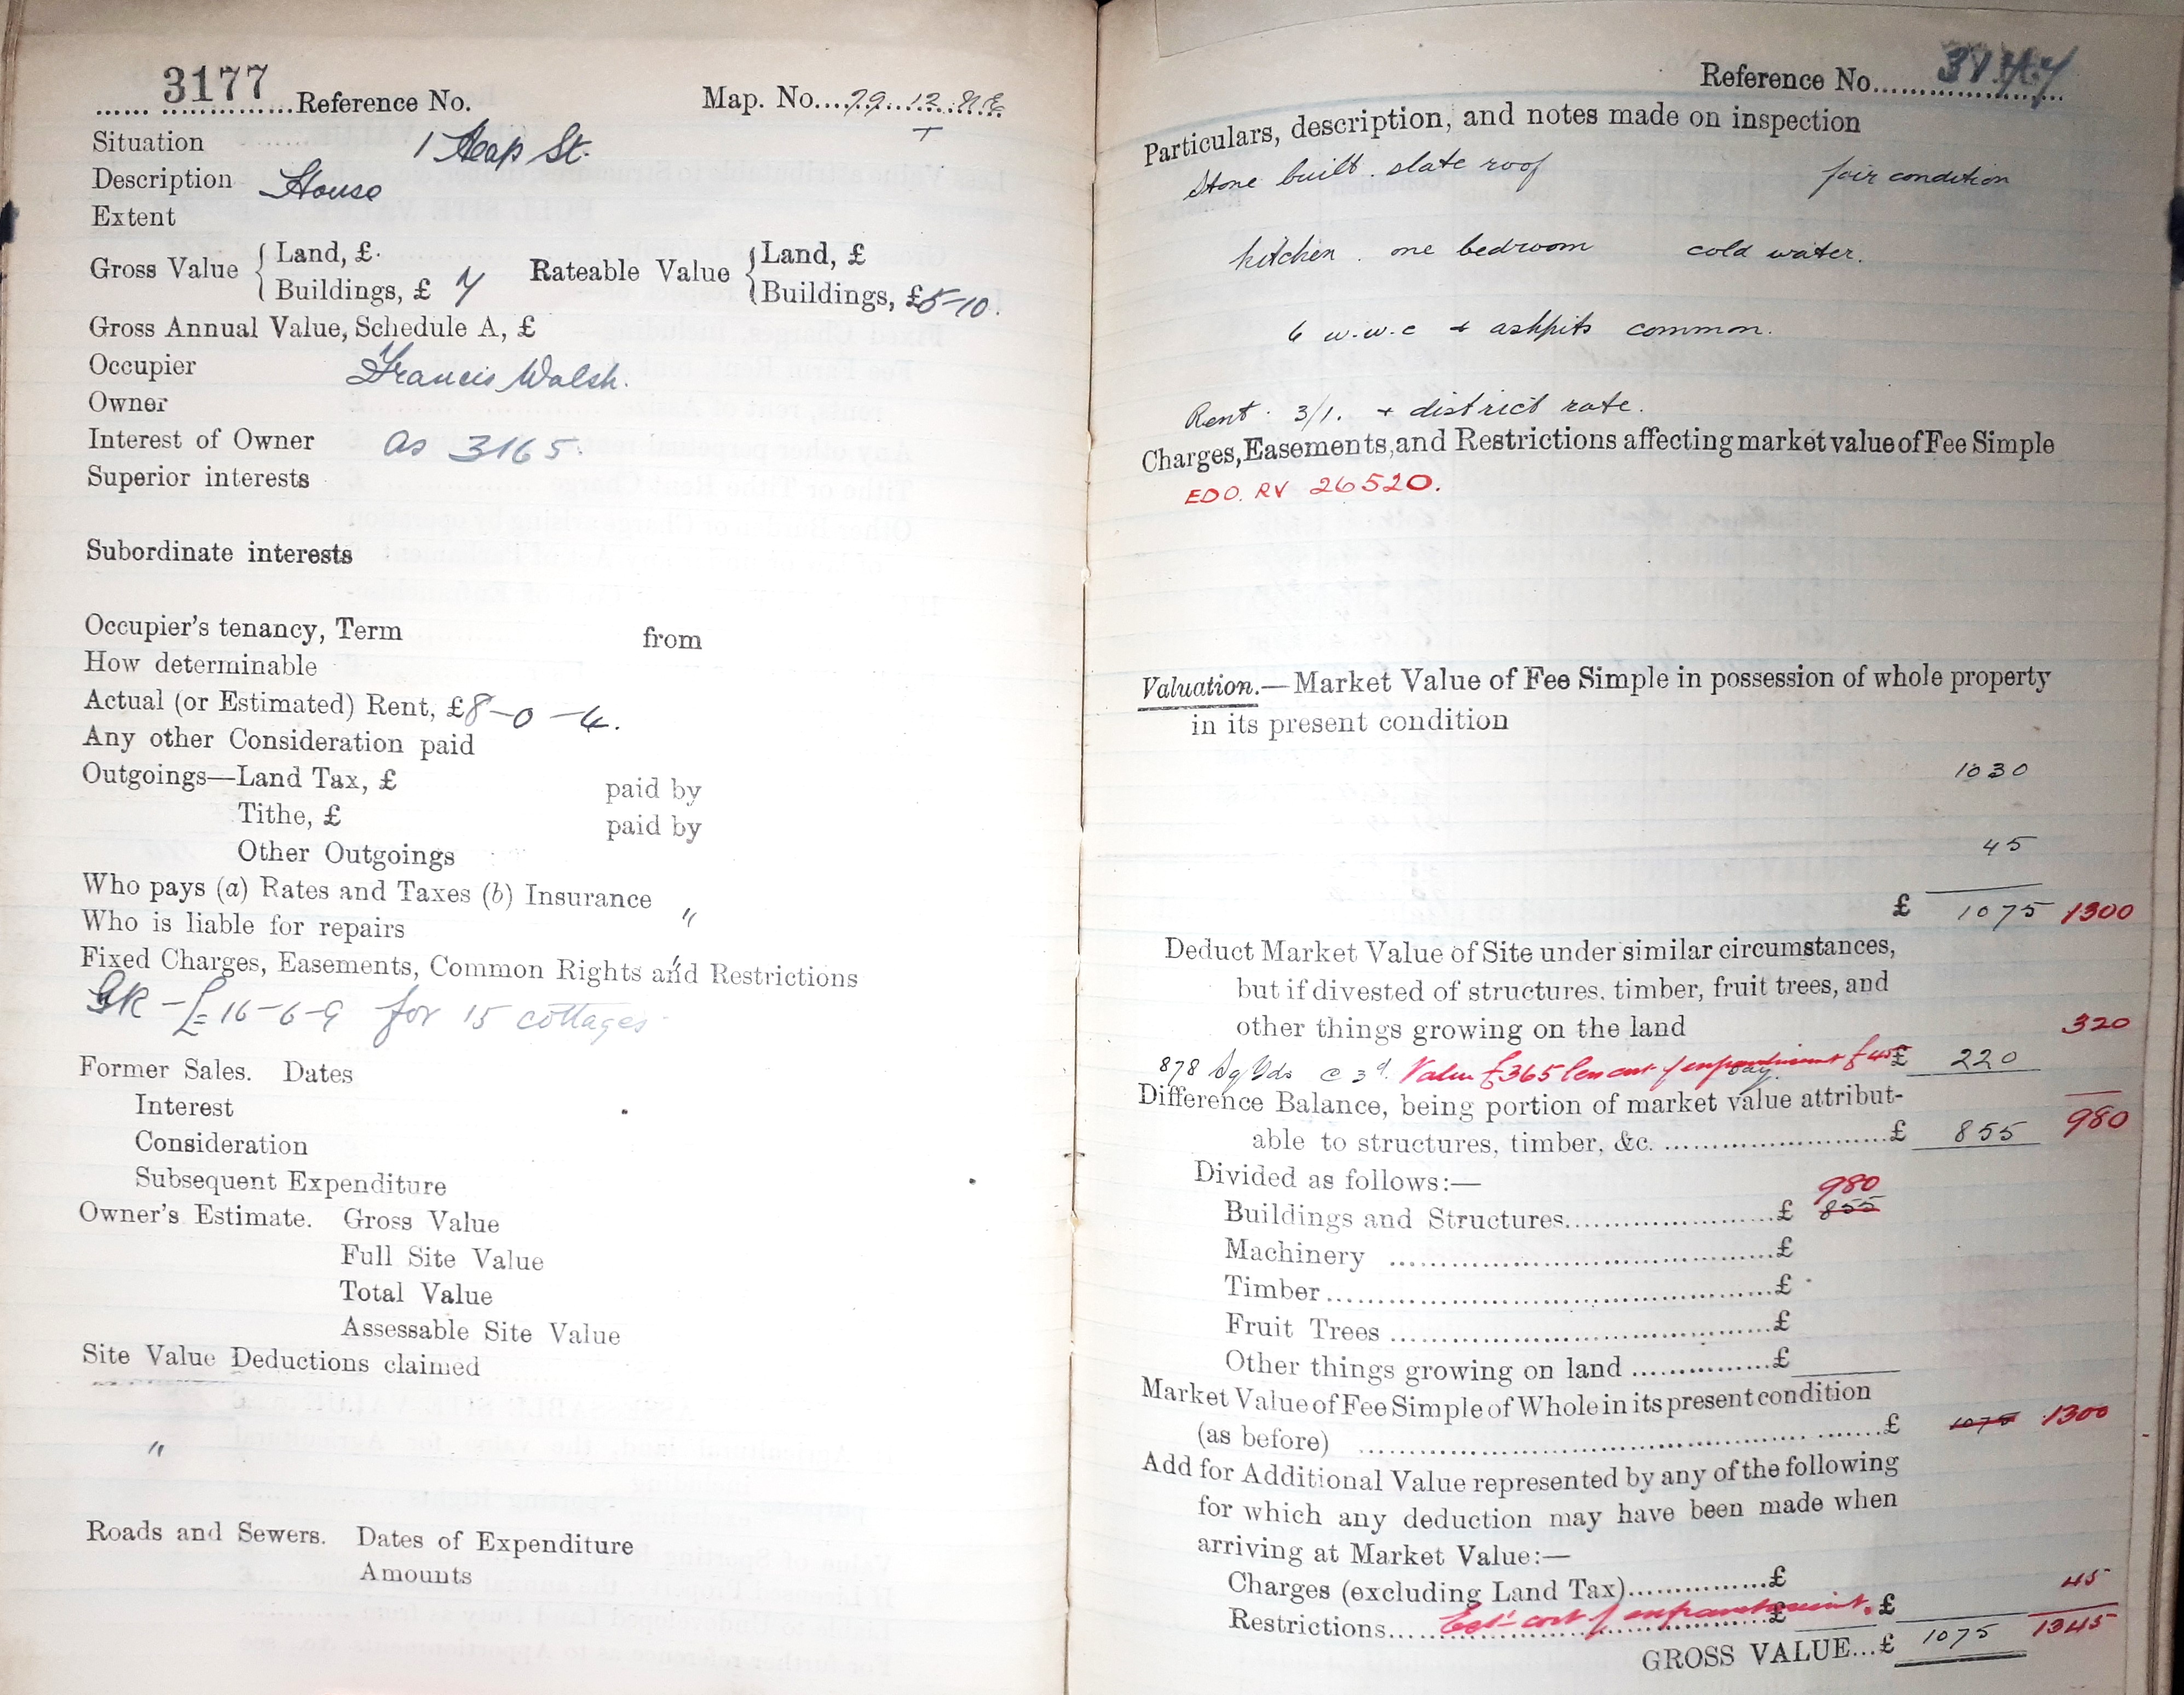 3177 Reference No. Map. No. 79. 12. N.E.
Situation 1 Heap St.
Description House
Extent
Gross Value { Land, £ Rateable Value { Land, £
Buildings, £ 7 Buildings, £5-10.
Gross Annual Value, Schedule A, £
Occupier Francis Walsh.
Owner
Interest of Owner as 3165.
Superior interests
Subordinate interests
Occupier's tenancy, Term from
How determinable
Actual (or Estimated) Rent, £8-0-4.
Any other Consideration paid
Outgoings—Land Tax, £ paid by
Tithe, £ paid by
Other Outgoings
Who pays (a) Rates and Taxes (b) Insurance "
Who is liable for repairs "
Fixed Charges, Easements, Common Rights and Restrictions
GR - £16-6-9 for 15 cottages
Former Sales. Dates
Interest
Consideration
Subsequent Expenditure
Owner's Estimate. Gross Value
Full Site Value
Total Value
Assessable Site Value
Site Value Deductions claimed
"
Roads and Sewers. Dates of Expenditure
Amounts
Reference No.
Particulars, description, and notes made on inspection
Stone built. slate roof fair condition
kitchen. one bedroom cold water.
6 w.w.c & ashpits common.
Rent. 3/1. + district rate.
Charges, Easements, and Restrictions affecting market value of Fee Simple
EDO. RV 26520.
Valuation.—Market Value of Fee Simple in possession of whole property
in its present condition
1030
45
£ 1075 1300
Deduct Market Value of Site under similar circumstances,
but if divested of structures, timber, fruit trees, and
other things growing on the land 320
878 Sq Yds @ 3d. Value £365 less cost of enfranchisement £45 say £ 220
Difference Balance, being portion of market value attribut-
able to structures, timber, &c. £ 855 980
Divided as follows:—
980
Buildings and Structures £ 855
Machinery £
Timber £
Fruit Trees £
Other things growing on land £
Market Value of Fee Simple of Whole in its present condition
(as before) £ 1075 1300
Add for Additional Value represented by any of the following
for which any deduction may have been made when
arriving at Market Value:—
Charges (excluding Land Tax) £ 45
Restrictions Est. cost of enfranchisement. £ £
GROSS VALUE...£ 1075 1345